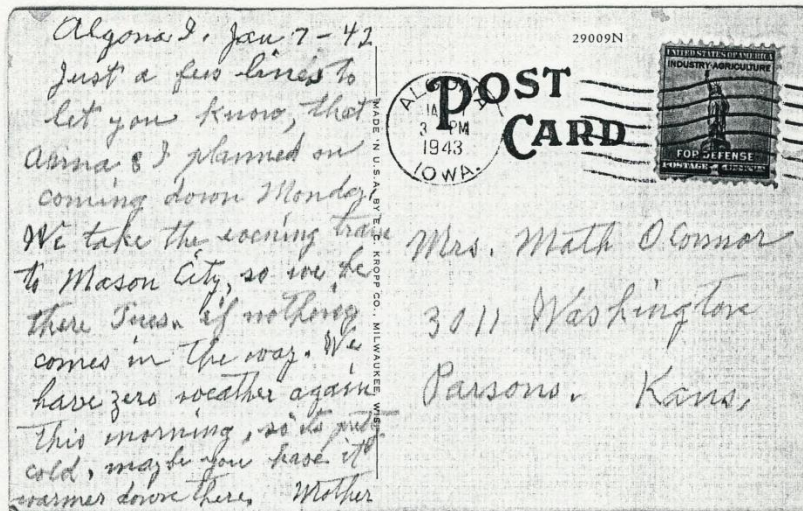 Algona I. Jan 7-42
Just a few lines to
let you know, that
Anna & I planned on
coming down Monday.
We take the evening train
to Mason City, so we be
there Tues. if nothing
comes in the way. We
have zero weather again
this morning, so its pretty
cold, maybe you have it
warmer down there. Mother
MADE IN U.S.A. BY E. C. KROPP CO., MILWAUKEE, WIS.
29009N
POST
CARD
ALGONA
3 PM
1943
IOWA.
UNITED STATES OF AMERICA
INDUSTRY·AGRICULTURE
FOR DEFENSE
POSTAGE
Mrs. Math O'Connor
3011 Washington
Parsons. Kans.